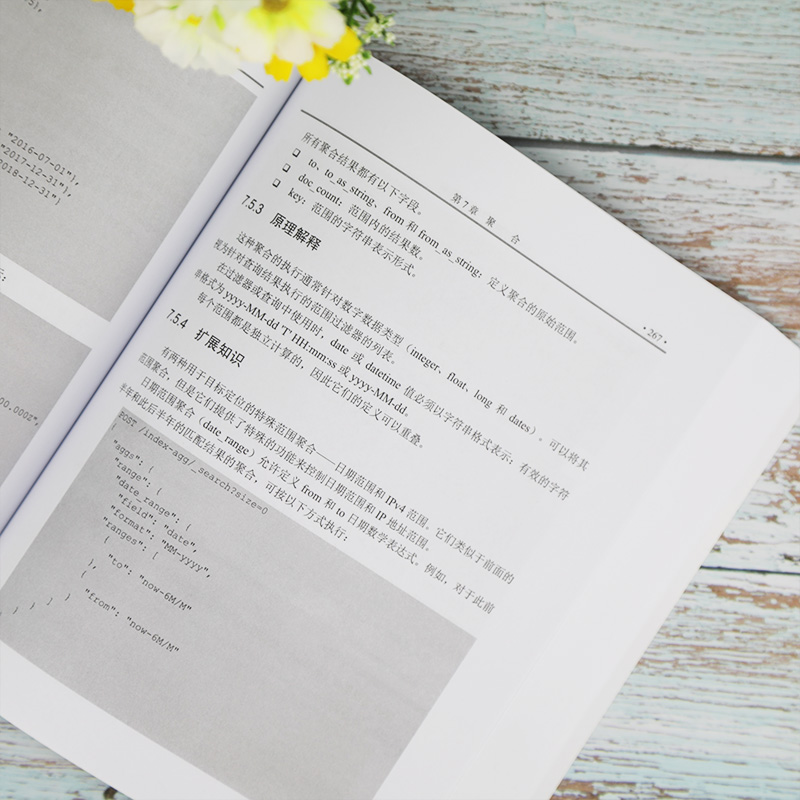 "2016-07-01"},
"2017-12-31"},
2018-12-31"}
00.000Z",
第7章 聚 合
• 267 •
所有聚合结果都有以下字段。
❑ to、to_as_string、from 和 from_as_string：定义聚合的原始范围。
❑ doc_count：范围内的结果数。
❑ key：范围的字符串表示形式。
7.5.3 原理解释
这种聚合的执行通常针对数字数据类型（integer、float、long 和 dates）。可以将其
视为针对查询结果执行的范围过滤器的列表。
在过滤器或查询中使用时，date 或 datetime 值必须以字符串格式表示；有效的字符
串格式为 yyyy-MM-dd 'T' HH:mm:ss 或 yyyy-MM-dd。
每个范围都是独立计算的，因此它们的定义可以重叠。
7.5.4 扩展知识
有两种用于目标定位的特殊范围聚合——日期范围和 IPv4 范围。它们类似于前面的
范围聚合，但是它们提供了特殊的功能来控制日期范围和 IP 地址范围。
日期范围聚合（date_range）允许定义 from 和 to 日期数学表达式。例如，对于此前
半年和此后半年的匹配结果的聚合，可按以下方式执行：
POST /index-agg/_search?size=0
{
"aggs": {
"range": {
"date_range": {
"field": "date",
"format": "MM-yyyy",
"ranges": [
{
"to": "now-6M/M"
}, {
"from": "now-6M/M"
} ] } } } }